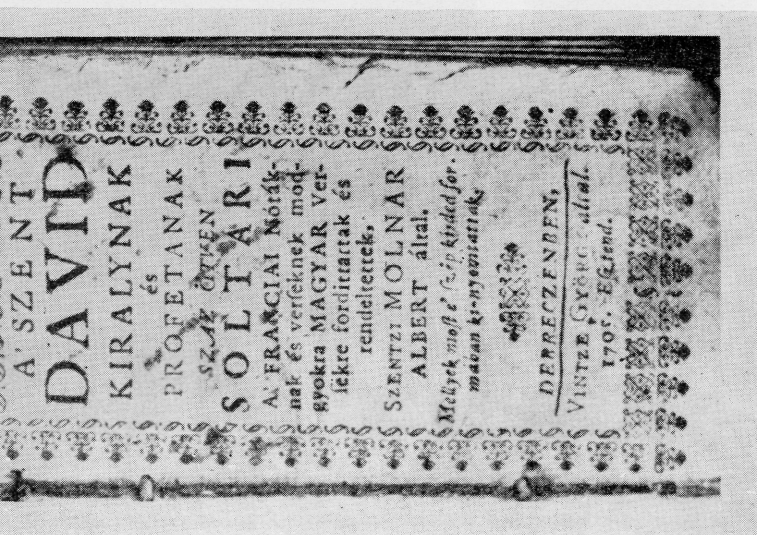 A' SZENT
DAVID
KIRALYNAK
és
PROFETANAK
SZAZ ÖTVEN
SOLTARI
A' FRANCIAI Nóták-
nak és verseknek mód-
gyokra MAGYAR Ver-
sekre fordittattak és
rendeltettek,
SZENTZI MOLNAR
ALBERT által.
Mellyek most e' szép kisded for-
mában ki-nyomtattak,
DEBRECZENBEN,
VINTZE GYÖRGY által.
1705. Esztend.